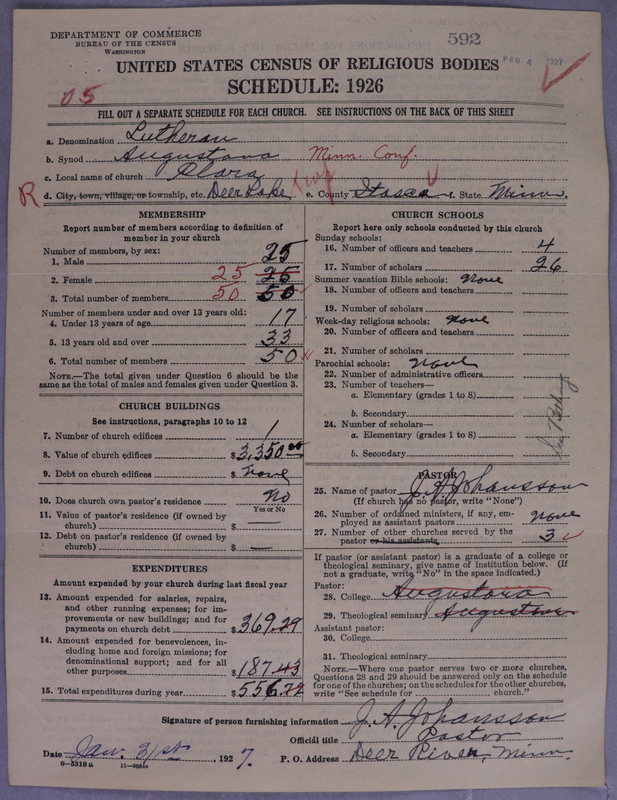 DEPARTMENT OF COMMERCE
BUREAU OF THE CENSUS
WASHINGTON
592
FEB 4 1927
UNITED STATES CENSUS OF RELIGIOUS BODIES
SCHEDULE: 1926
05
FILL OUT A SEPARATE SCHEDULE FOR EACH CHURCH. SEE INSTRUCTIONS ON THE BACK OF THIS SHEET
a. Denomination Lutheran
b. Synod Augustana Minn. Conf.
c. Local name of church Clara
R d. City, town, village, or township, etc. Deer Lake Twp e. County Itasca f. State Minn.
MEMBERSHIP
Report number of members according to definition of
member in your church
Number of members, by sex:
1. Male 25
2. Female 25 25
3. Total number of members 50 50
Number of members under and over 13 years old:
4. Under 13 years of age 17
5. 13 years old and over 33
6. Total number of members 50
NOTE.—The total given under Question 6 should be the
same as the total of males and females given under Question 3.
CHURCH BUILDINGS
See instructions, paragraphs 10 to 12
7. Number of church edifices 1
8. Value of church edifices $3,350.00
9. Debt on church edifices $ None
10. Does church own pastor's residence No
Yes or No
11. Value of pastor's residence (if owned by
church) $ —
12. Debt on pastor's residence (if owned by
church) $ —
EXPENDITURES
Amount expended by your church during last fiscal year
13. Amount expended for salaries, repairs,
and other running expenses; for im-
provements or new buildings; and for
payments on church debt $369.29
14. Amount expended for benevolences, in-
cluding home and foreign missions; for
denominational support; and for all
other purposes $187.43
15. Total expenditures during year $556.72
CHURCH SCHOOLS
Report here only schools conducted by this church
Sunday schools:
16. Number of officers and teachers 4
17. Number of scholars 26
Summer vacation Bible schools: None
18. Number of officers and teachers
19. Number of scholars
Week-day religious schools: None
20. Number of officers and teachers
21. Number of scholars
Parochial schools: None
22. Number of administrative officers
23. Number of teachers—
a. Elementary (grades 1 to 8)
b. Secondary
24. Number of scholars—
a. Elementary (grades 1 to 8)
b. Secondary
PASTOR
25. Name of pastor J. A. Johansson
(If church has no pastor, write "None")
26. Number of ordained ministers, if any, em-
ployed as assistant pastors None
27. Number of other churches served by the
pastor or his assistants 3
If pastor (or assistant pastor) is a graduate of a college or
theological seminary, give name of institution below. (If
not a graduate, write "No" in the space indicated.)
Pastor:
28. College Augustana
29. Theological seminary Augustana
Assistant pastor:
30. College
31. Theological seminary
NOTE.—Where one pastor serves two or more churches,
Questions 28 and 29 should be answered only on the schedule
for one of the churches; on the schedules for the other churches,
write "See schedule for church."
Signature of person furnishing information J. A. Johansson
Official title Pastor
Date Jan. 31st, 1927. P. O. Address Deer River, Minn.
8—5518a